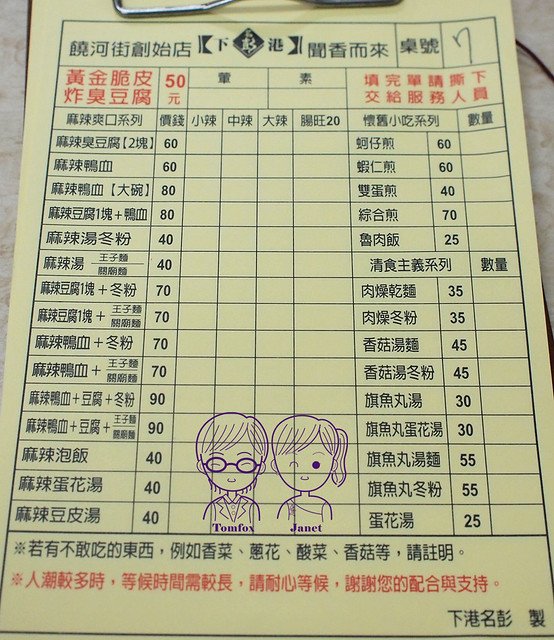 饒河街創始店【下 彭 港】聞香而來 桌號 7
黃金脆皮 炸臭豆腐 50元 葷 素 填完單請撕下 交給服務人員
麻辣爽口系列 價錢 小辣 中辣 大辣 腸旺20 懷舊小吃系列 數量
麻辣臭豆腐【2塊】 60 蚵仔煎 60
麻辣鴨血 60 蝦仁煎 60
麻辣鴨血【大碗】 80 雙蛋煎 40
麻辣豆腐1塊+鴨血 80 綜合煎 70
麻辣湯冬粉 40 魯肉飯 25
麻辣湯 王子麵 關廟麵 40 清食主義系列 數量
麻辣豆腐1塊+冬粉 70 肉燥乾麵 35
麻辣豆腐1塊+王子麵 關廟麵 70 肉燥冬粉 35
麻辣鴨血+冬粉 70 香菇湯麵 45
麻辣鴨血+王子麵 關廟麵 70 香菇湯冬粉 45
麻辣鴨血+豆腐+冬粉 90 旗魚丸湯 30
麻辣鴨血+豆腐+王子麵 關廟麵 90 旗魚丸蛋花湯 30
麻辣泡飯 40 旗魚丸湯麵 55
麻辣蛋花湯 40 旗魚丸冬粉 55
麻辣豆皮湯 40 蛋花湯 25
Tomfox Janet
※若有不敢吃的東西,例如香菜、蔥花、酸菜、香菇等,請註明。
※人潮較多時,等候時間需較長,請耐心等候,謝謝您的配合與支持。
下港名彭 製